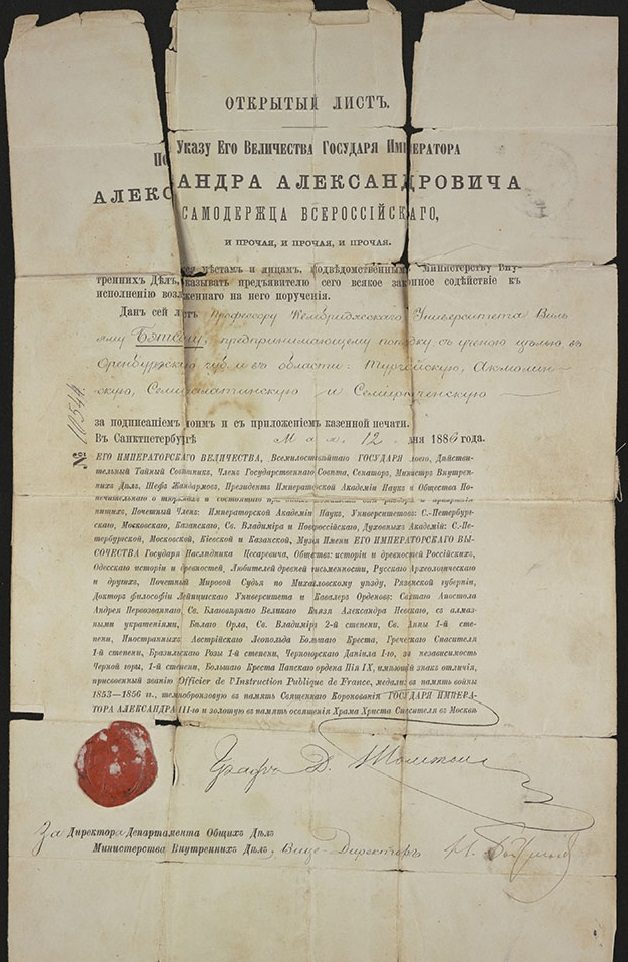 ОТКРЫТЫЙ ЛИСТЪ.
По Указу Его Величества Государя Императора
АЛЕКСАНДРА АЛЕКСАНДРОВИЧА
САМОДЕРЖЦА ВСЕРОССІЙСКАГО,
и прочая, и прочая, и прочая.
мѣстамъ и лицамъ, подвѣдомственнымъ Министерству Внутреннихъ Дѣлъ, оказывать предъявителю сего всякое законное содѣйствіе къ
исполненію возложеннаго на него порученія.
Данъ сей листъ Профессору Кембриджскаго Университета Виль
яму Бэтсону, предпринимающему поѣздку съ ученою цѣлью въ
Оренбургскую губ. и въ области: Тургайскую, Акмолин-
скую, Семипалатинскую и Семирѣченскую
за подписаніемъ моимъ и съ приложеніемъ казенной печати.
Въ Санктпетербургѣ Мая 12 дня 1886 года.
№ 11544
ЕГО ИМПЕРАТОРСКАГО ВЕЛИЧЕСТВА, Всемилостивѣйшаго ГОСУДАРЯ моего, Дѣйстви-
тельный Тайный Совѣтникъ, Членъ Государственнаго Совѣта, Сенаторъ, Министръ Внутрен-
нихъ Дѣлъ, Шефъ Жандармовъ, Президентъ Императорской Академіи Наукъ и Общества По-
печительнаго о тюрьмахъ и состоящаго при
нищихъ, Почетный Членъ: Императорской Академіи Наукъ, Университетовъ: С.-Петербург-
скаго, Московскаго, Казанскаго, Св. Владиміра и Новороссійскаго, Духовныхъ Академій: С.-Пе-
тербургской, Московской, Кіевской и Казанской, Музея Имени ЕГО ИМПЕРАТОРСКАГО ВЫ-
СОЧЕСТВА Государя Наслѣдника Цесаревича, Обществъ: исторіи и древностей Россійскихъ,
Одесскаго исторіи и древностей, Любителей древней письменности, Русскаго Археологическаго
и другихъ, Почетный Мировой Судья по Михайловскому уѣзду, Рязанской губерніи,
Докторъ философіи Лейпцигскаго Университета и Кавалеръ Орденовъ: Святаго Апостола
Андрея Первозваннаго, Св. Благовѣрнаго Великаго Князя Александра Невскаго, съ алмаз-
ными украшеніями, Бѣлаго Орла, Св. Владиміра 2-й степени, Св. Анны 1-й сте-
пени, Иностранныхъ: Австрійскаго Леопольда Большаго Креста, Греческаго Спасителя
1-й степени, Бразильскаго Розы 1-й степени, Черногорскаго Даніила I-го, за независимость
Черной горы, 1-й степени, Большаго Креста Папскаго ордена Пія IX, имѣющій знакъ отличія,
присвоенный званію Officier de l'Instruction Publique de France, медали: въ память войны
1853—1856 гг., темнобронзовую въ память Священнаго Коронованія ГОСУДАРЯ ИМПЕРА-
ТОРА АЛЕКСАНДРА III-го и золотую въ память освященія Храма Христа Спасителя въ Москвѣ
Графъ Д. Толстой
За Директора Департамента Общихъ Дѣлъ
Министерства Внутреннихъ Дѣлъ, Вице-Директоръ